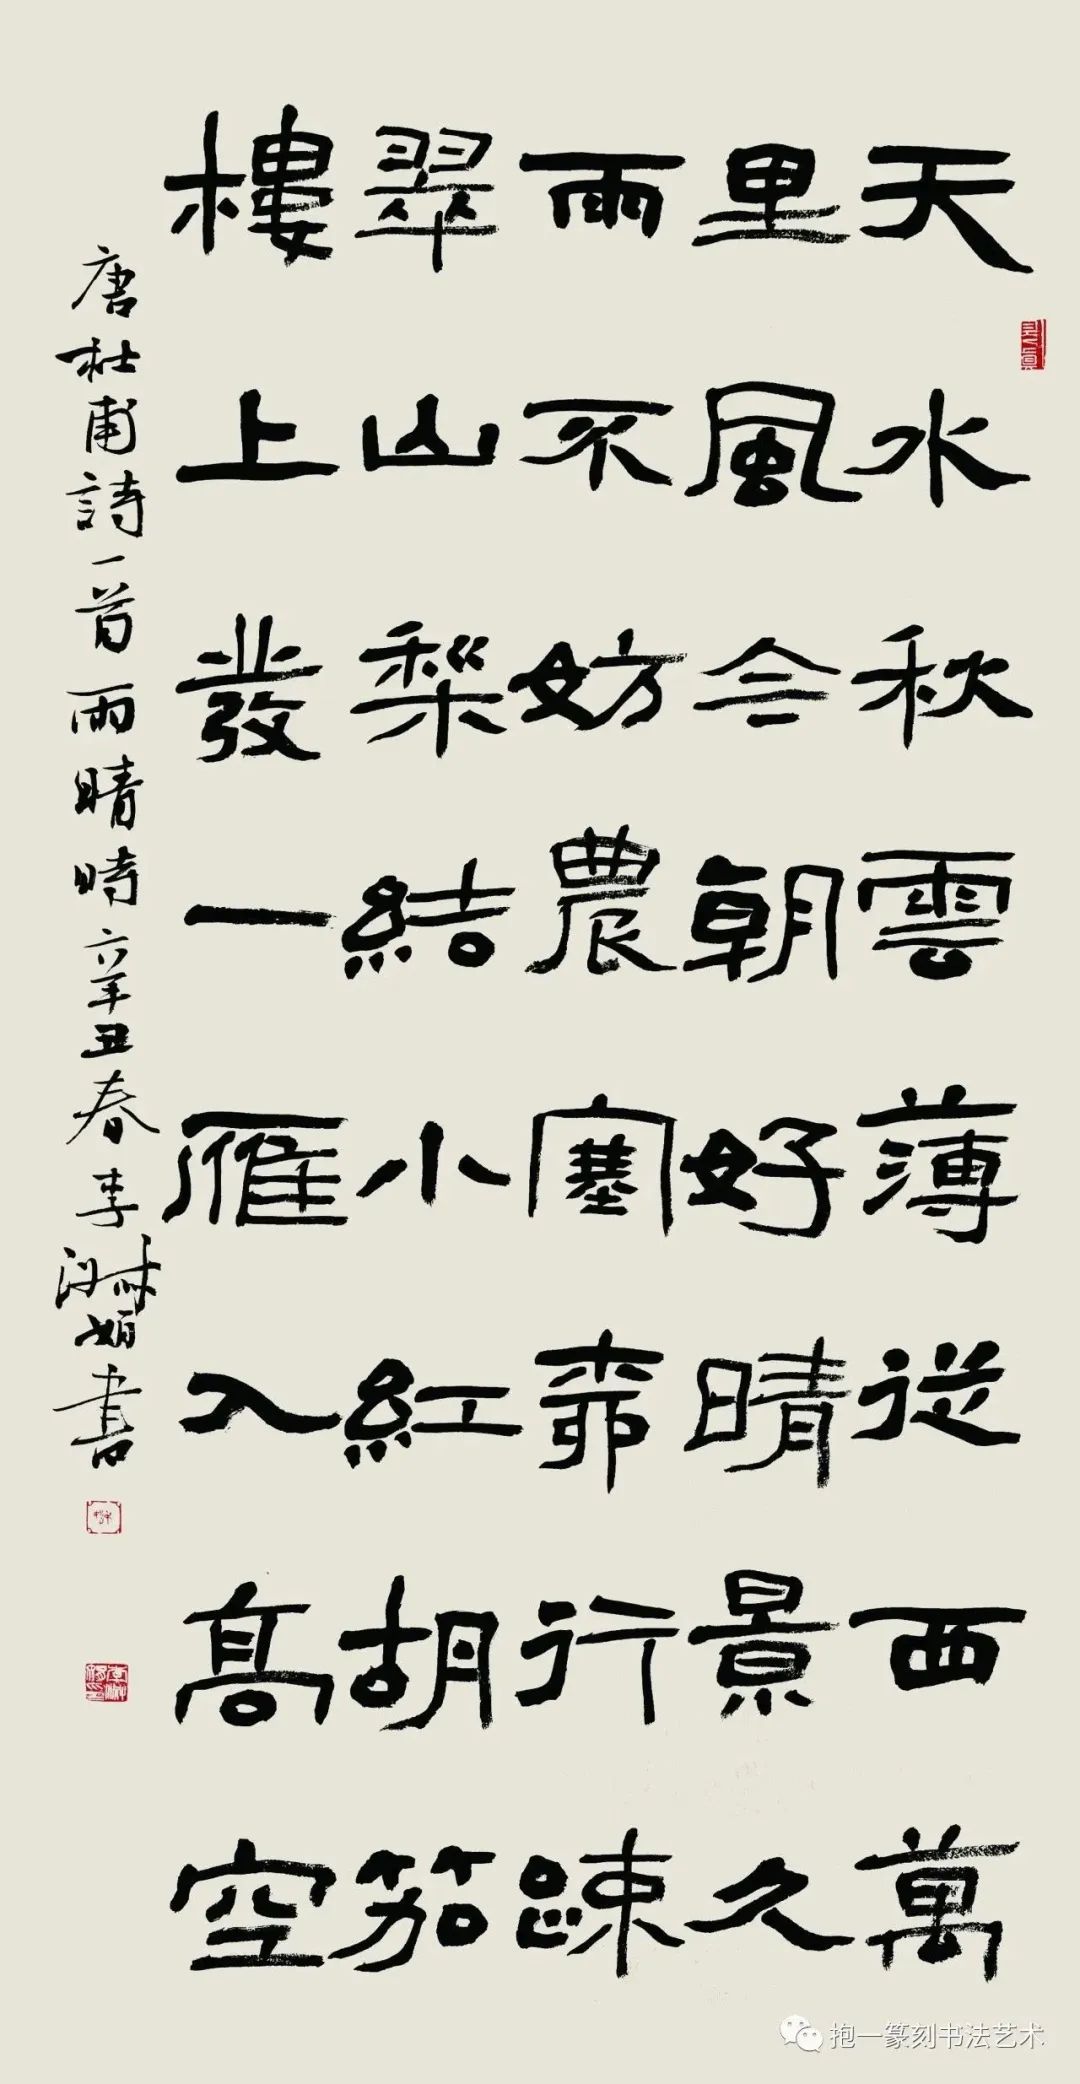 天水秋雲薄從西萬
里風今朝好晴景久
雨不妨農塞桺行疎
翠山梨結小紅胡笳
樓上發一雁入高空
唐杜甫詩一首雨晴時辛丑春李淑娟書
抱一篆刻书法艺术